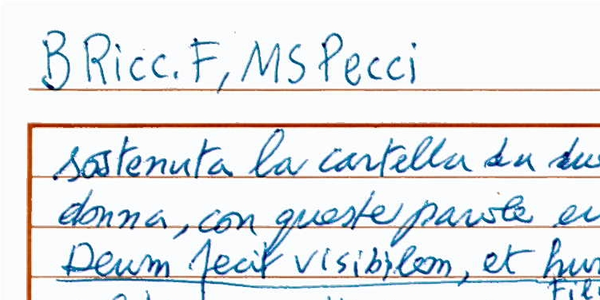 B Ricc. F, MS Pecci
sostenuta la cartella da
donna, con queste parole
Deum fecit visibilem, et